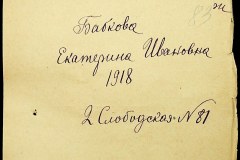 Бабкова
Екатерина Ивановна
1918
2 Слободская №81